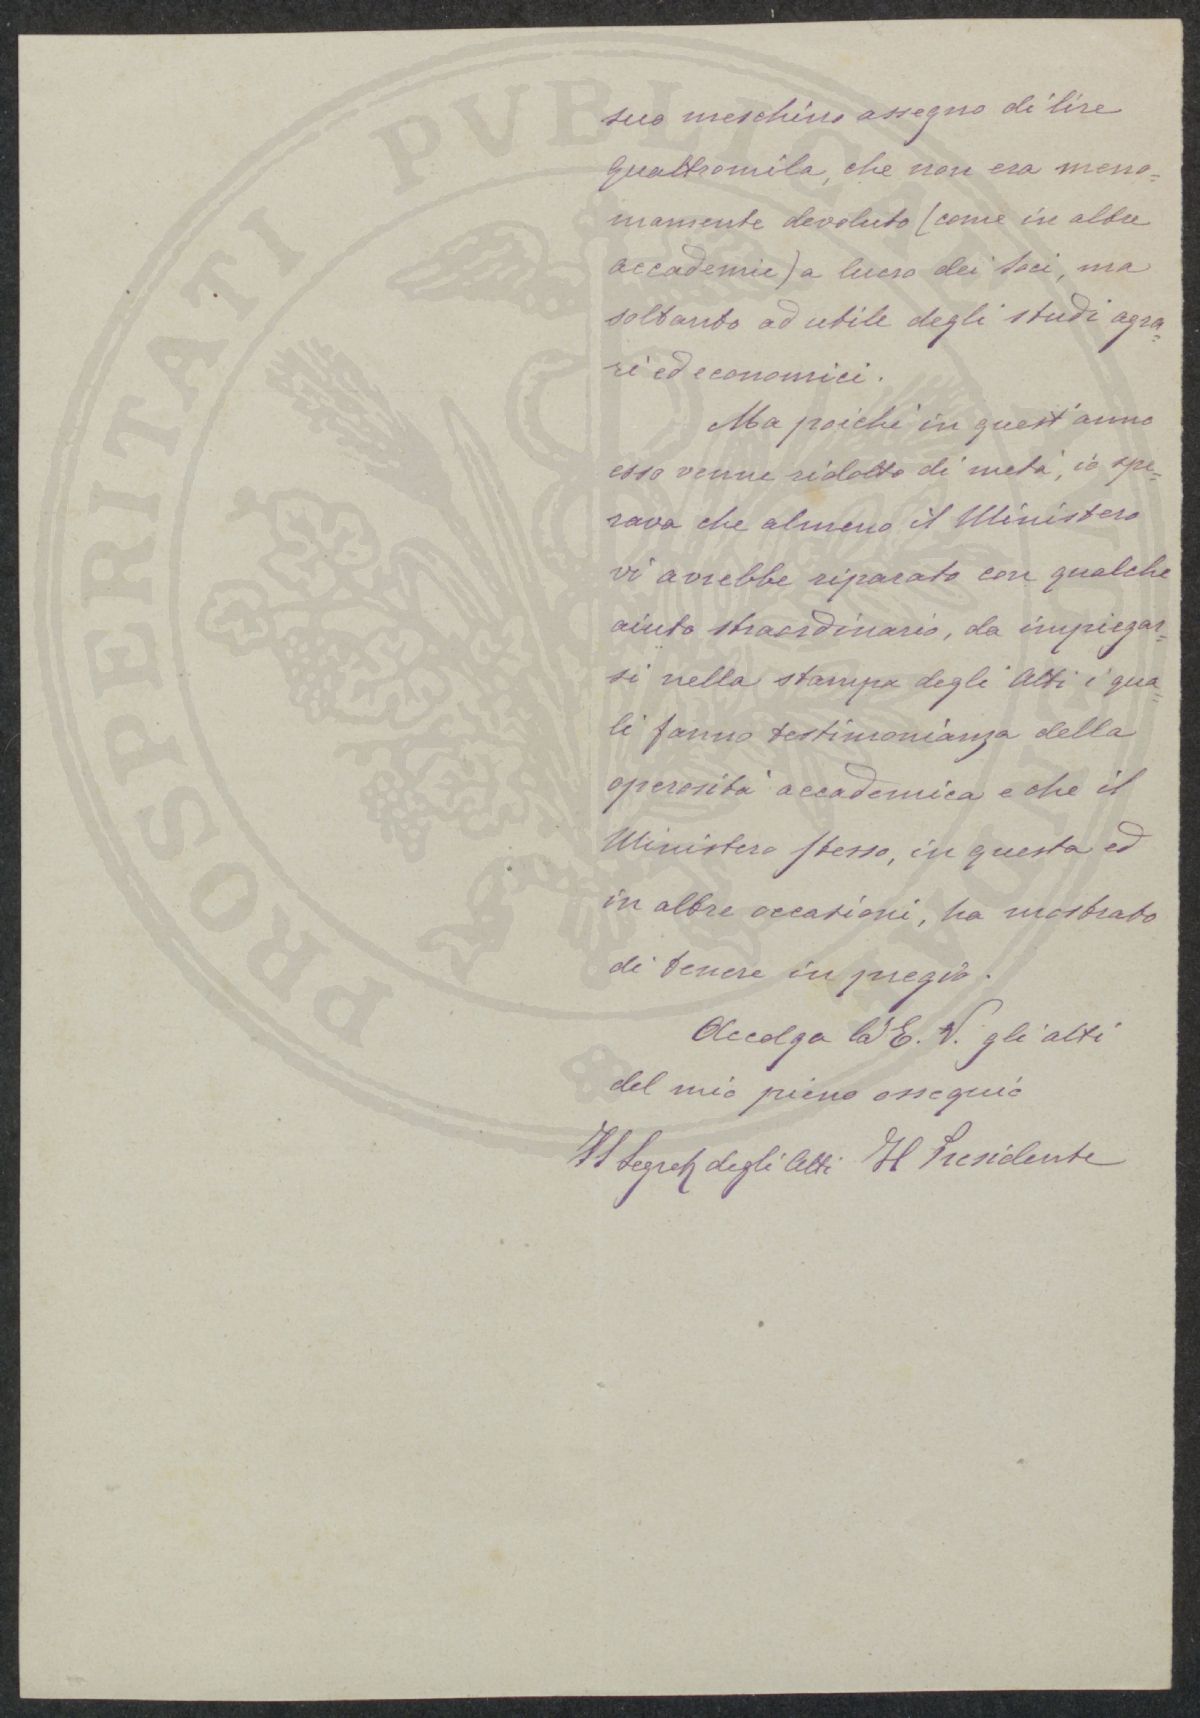 suo meschino assegno di lire
quattromila, che non era meno=
mamente devoluto (come in altre
accademie) a lucro dei Soci, ma
soltanto ad utile degli studi agra=
ri ed economici.
Ma poichè in quest'anno
esso venne ridotto di metà, io spe=
rava che almeno il Ministero
vi avrebbe riparato con qualche
aiuto straordinario, da impiegar=
si nella stampa degli Atti i qua=
li fanno testimonianza della
operosità accademica e che il
Ministero stesso, in questa ed
in altre occasioni, ha mostrato
di tenere in pregio.
Accolga la E. V. gli atti
del mio pieno ossequio
Il Segret degli Atti Il Presidente
PROSPERITATI PVBLICAE